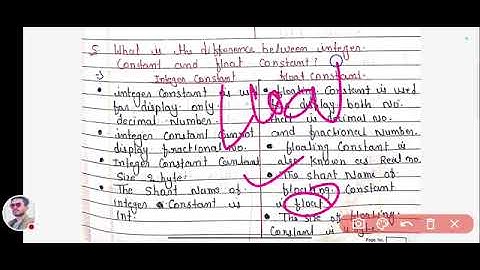 5 What is the difference between integer
Constant and float Constant?
Integer Constant
float Constant
integer Constant is used
for display only
decimal Number.
integer constant cannot
display fractional no.
Integer Constant Constant
Size 2 byte.
The Short Name of
integer Constant is
Int.
floating Constant is used
display both no.
that is decimal no.
and fractional Number.
floating Constant is
also known as Real no.
The short Name of
floating Constant
is float
The size of floating
Constant is
Page No.